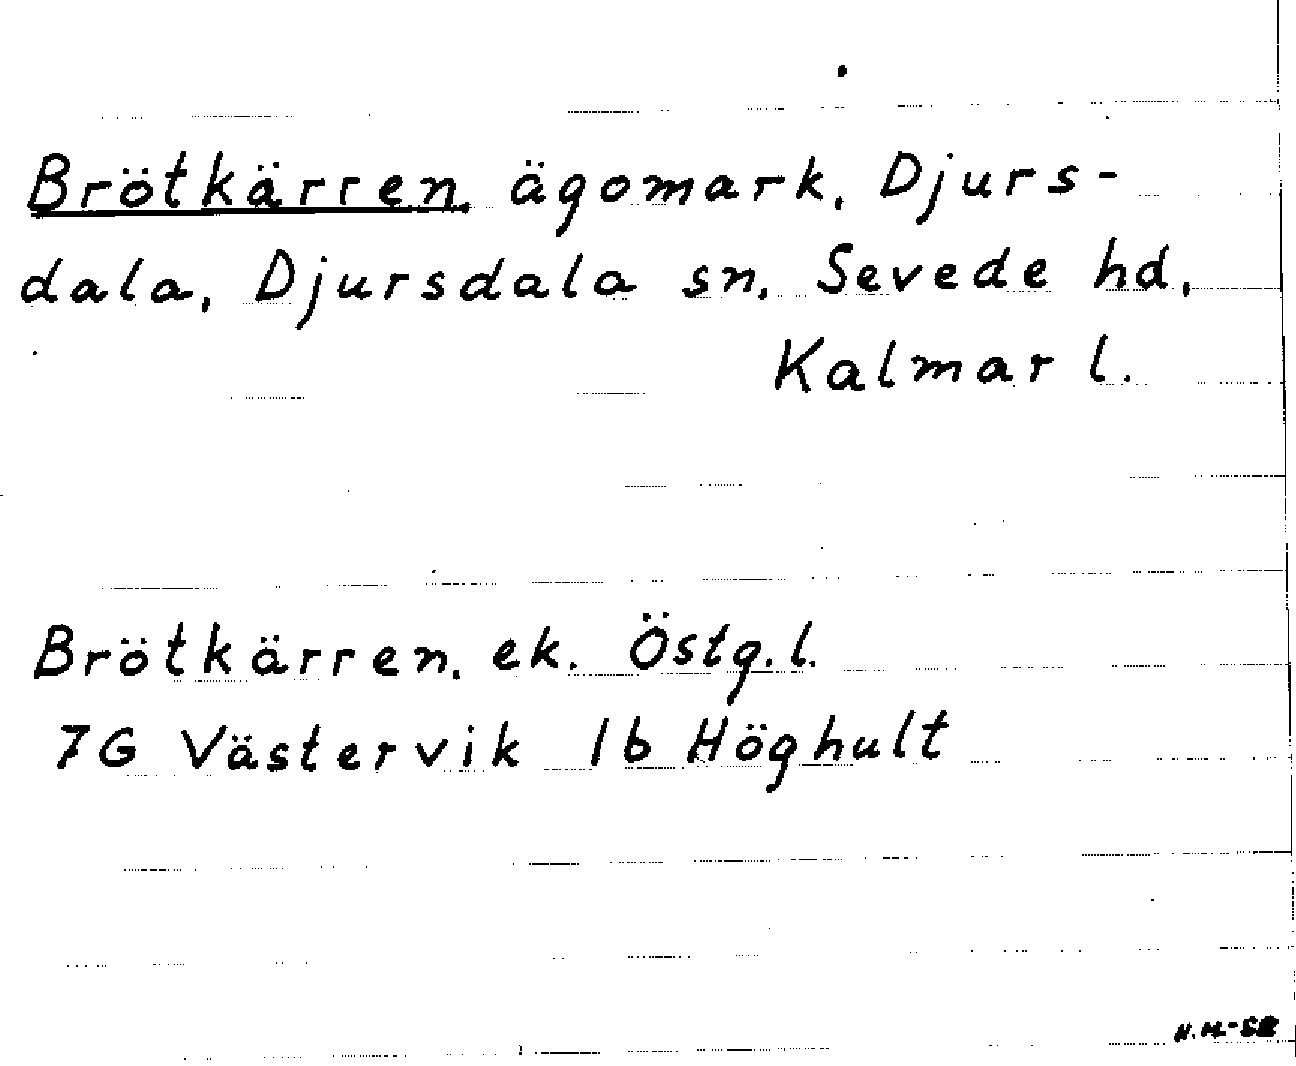 Brötkärren, ägomark, Djurs-
dala, Djursdala sn, Sevede hd,
Kalmar l.
Brötkärren, ek. Östg. l.
7G Västervik 1b Höghult